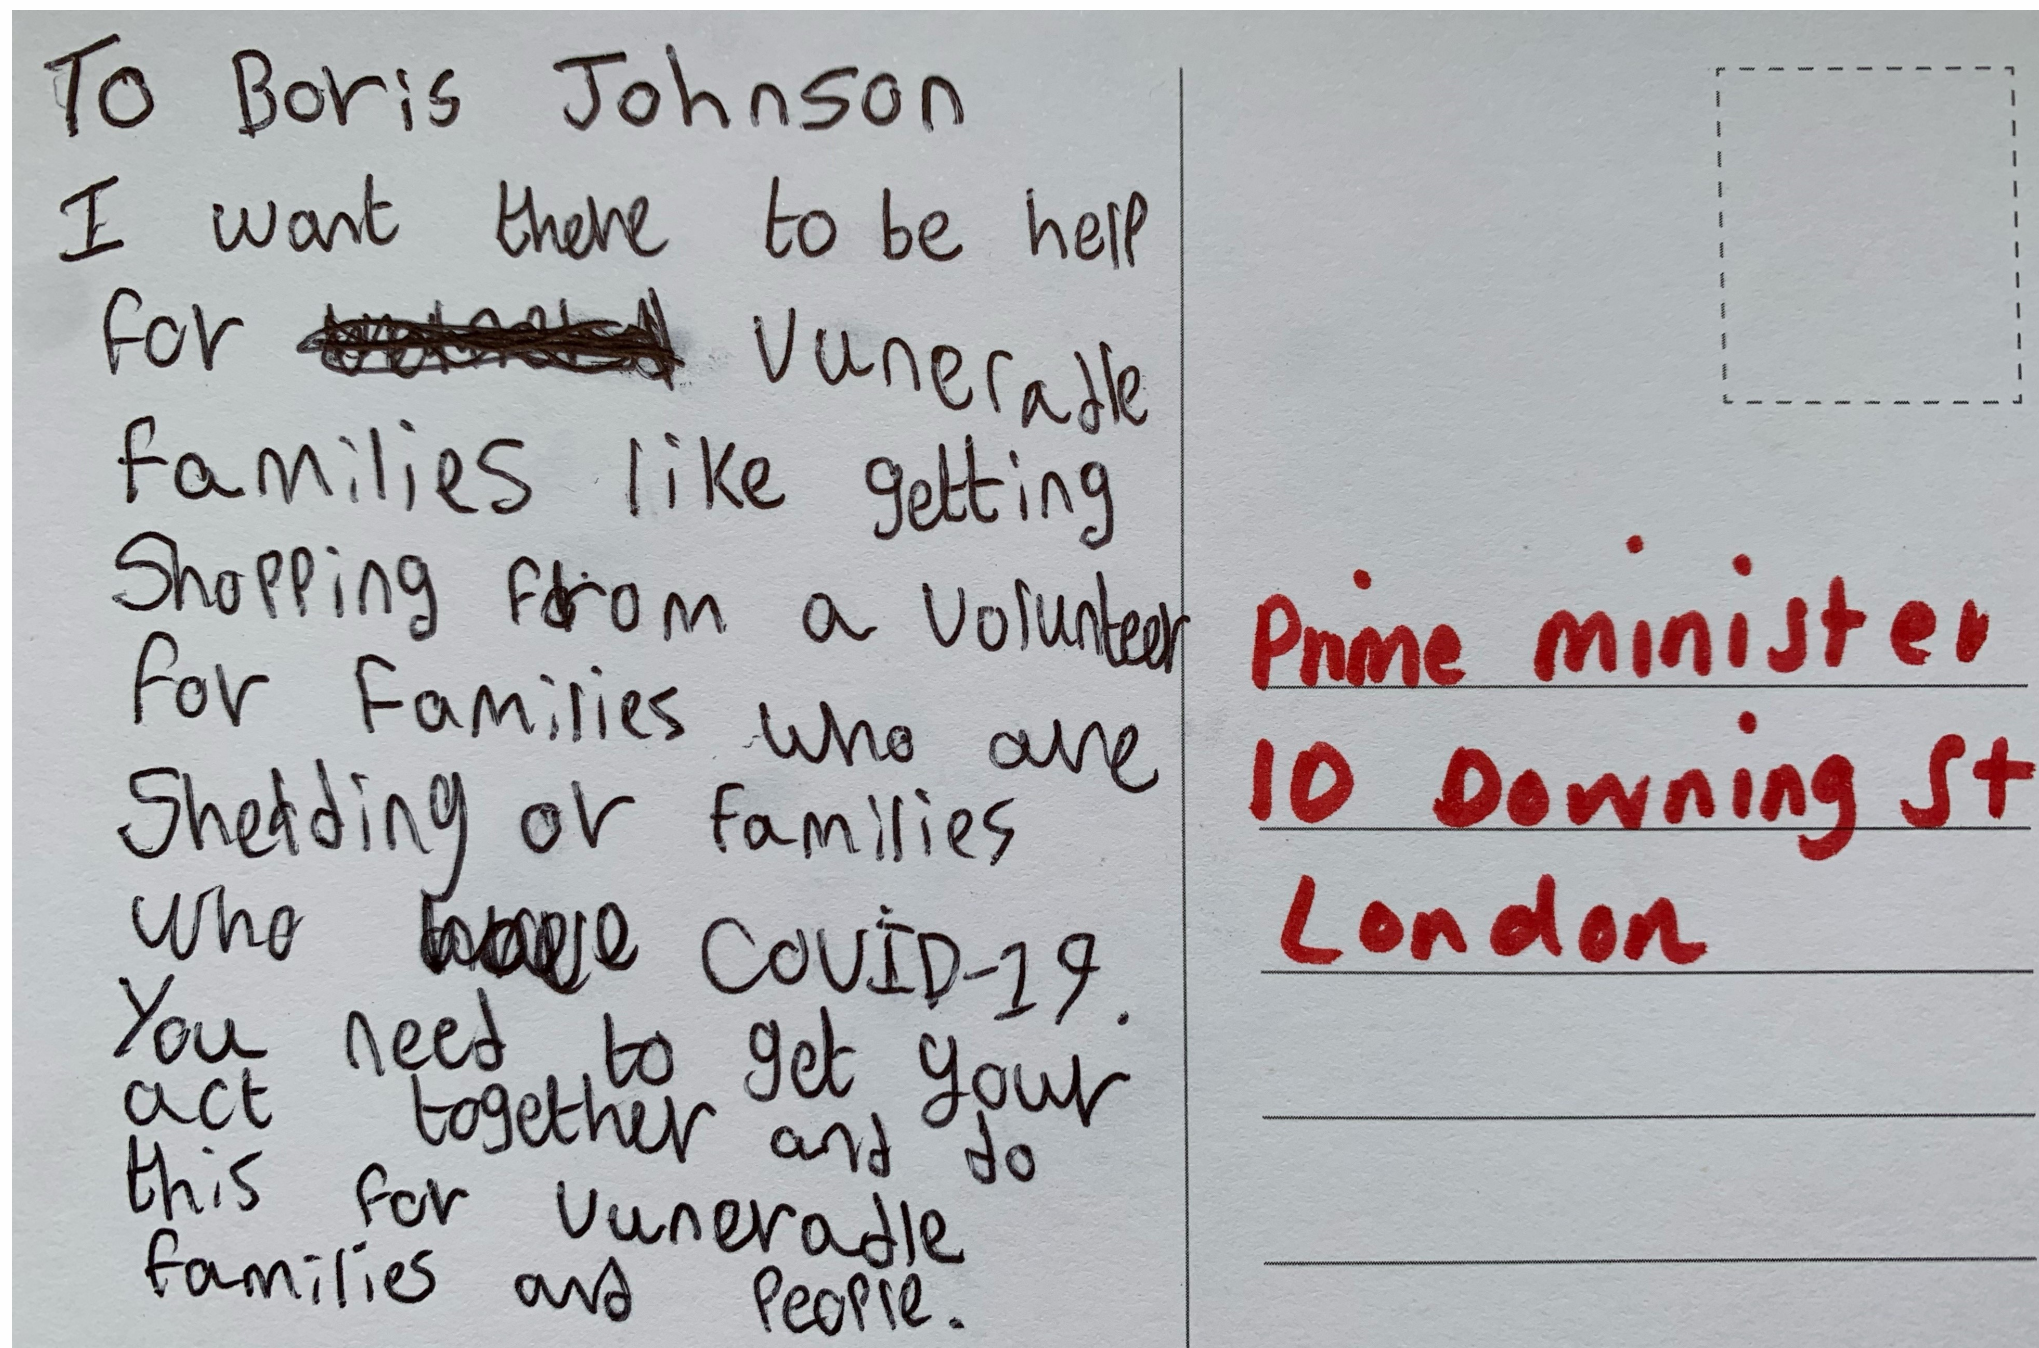 To Boris Johnson
I want there to be help
for Vuneradle
families like getting
Shopping from a volunteer
for families who are
Shedding or families
who have COVID-19.
You need to get your
act together and do
this for vuneradle
families and people.
Prime minister
10 Downing St
London